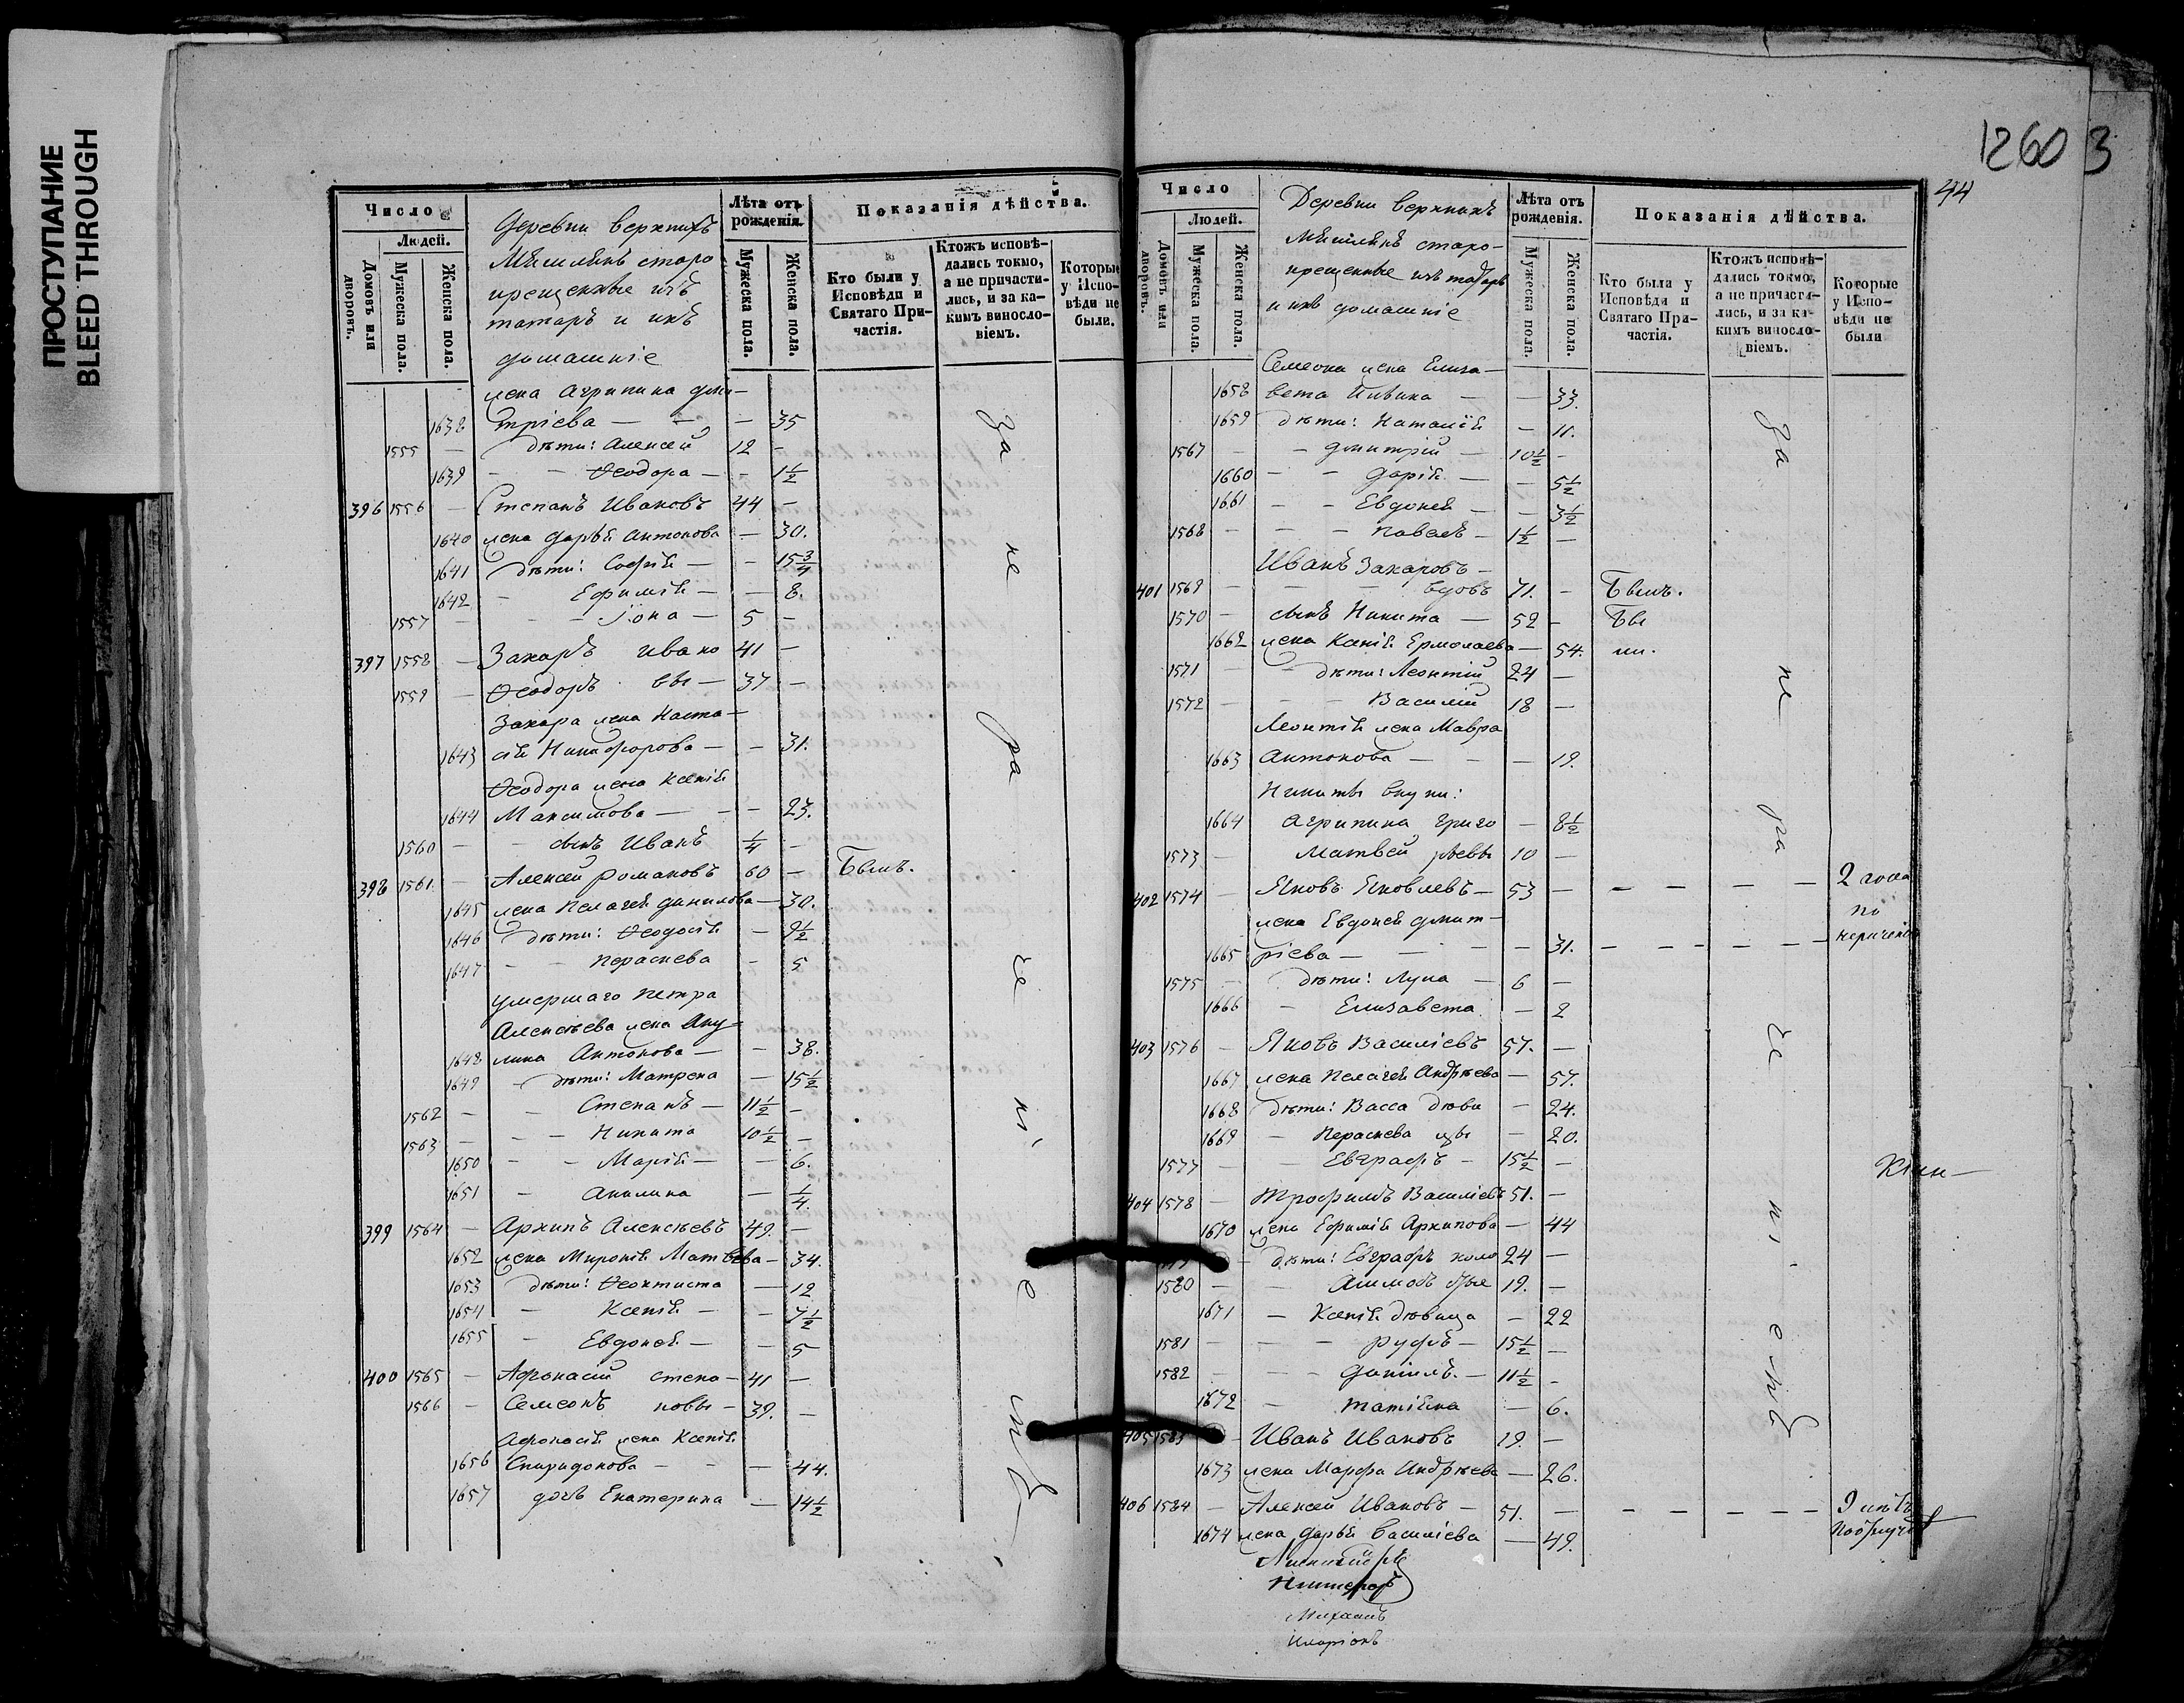 ПРОСТУПАНИЕ
BLEED THROUGH
12603
44
Число
Людей.
Домовъ или дворовъ.
Мужеска пола.
Женска пола.
Деревни верхнихъ
Мешлякъ старо
крещенные изъ
татаръ и ихъ
домашніе
Лѣта отъ рожденія.
Мужеска пола.
Женска пола.
Показанія дѣйства.
Кто были у Исповѣди и Святаго Причастія.
Ктожъ исповѣдались токмо, а не причастились, и за какимъ винословіемъ.
Которые у Исповѣди не были.
жена Агрипина Дми-
1638 тріева — — 35
1555 — дѣти: Алексей 12 —
1639 — Ѳеодора — — 1½
396 1556 — Степанъ Ивановъ 44 —
1640 жена Дарья Антонова — 30.
1641 дѣти: Софія — — 15¾
1642 — Ефимія — — 8.
1557 — — Іона — 5 —
397 1558 — Захаръ Ивано 41 —
1559 — Ѳеодоръ вы — 37 —
Захара жена Наста-
1643 сія Никифорова — — 31.
Ѳеодора жена Ксенія
1644 Максимова — — 23.
1560 — — сынъ Иванъ ¼ —
398 1561. — Алексей Романовъ 60 — Былъ.
1645 жена Пелагея Данилова — 30.
1646 дѣти: Ѳеодосія — 9½
1647 — — Параскева — 5
умершаго Петра
Алексѣева жена Аку-
1648 лина Антонова — — 38.
1649 — дѣти: Матрена — 15½
1562 — — Степанъ — 11½ —
1563 — — Никита 10½ —
1650 — — Марія — — 6.
1651 — Акилина — ¼.
399 1564 — Архипъ Алексѣевъ 49. —
1652 жена Миронія Матвѣева — 34.
1653 дѣти: Ѳеоктиста — 12
1654 — Ксенія — — 7½
1655 — Евдокея — — 5
400 1565 — Афонасій Степа — 41 —
1566 — Семеонъ новы — 39. —
Афонасія жена Ксенія
1656 Спиридонова — — — 44.
1657 дочь Екатерина — 14½
за не ра че ні е мъ
Число
Людей.
Домовъ или дворовъ.
Мужеска пола.
Женска пола.
Деревни верхнихъ
Мешлякъ старо-
крещенные изъ татаръ
и ихъ домашніе
Лѣта отъ рожденія.
Мужеска пола.
Женска пола.
Показанія дѣйства.
Кто были у Исповѣди и Святаго Причастія.
Ктожъ исповѣдались токмо, а не причастились, и за какимъ винословіемъ.
Которые у Исповѣди не были
Семеона жена Елиза-
1658 вета — — 33.
1659 дѣти: Наталія — 11.
1567 — — Дмитрій — 10½ —
1660 — — Дарія — — 5½
1661 — — Евдокея — — 3½
1568 — — — Павелъ — 1½ —
Иванъ Захаровъ —
401 1569 — — — вдовъ 71. — Былъ.
1570 — сынъ Никита — 52 — Бы
1662 жена Ксенія Ермолаева — 54. ли.
1571 — — дѣти: Леонтій 24 —
1572 — — — Василій 18 —
Леонтія жена Мавра
1663 Антонова — — — 19.
Никиты внуки:
1664 Агрипина Григо — 8½
1573 — Матвей рьевы 10 —
402 1574 — Яковъ Яковлевъ — 53 — — — — — 2 года
жена Евдокея Дмит- по
1665 ріева — — — — 31. — — — — — нерачению
1575 — дѣти: Лука — 6 —
1666 — Елизавета — 2
403 1576 — Яковъ Василіевъ 57. —
1667 жена Пелагея Андреева — 57.
1668 дѣти: Васса дѣви — 24.
1669 — Параскева цы — 20.
1577 — — Евграфъ — 15½ —
404 1578 — Трофимъ Василіевъ 51. —
1670 жена Ефимія Архипова — 44
— дѣти: Евграфъ холо 24 —
1580 — — стые 19. —
1671 — Ксенія дѣвица — 22
1581 — — — Руфъ — 15½ —
1582 — — — Даніилъ — 11½ —
1672 — Татіяна — 6.
405 1583 — Иванъ Ивановъ 19. —
1673 жена Марфа Андреева — 26.
406 1584 — Алексей Ивановъ — 51. — — — — — 9 лѣтъ
1674 жена Дарья Василіева — 49.
за не ра че ні е мъ
Михаилъ
Иларіонъ